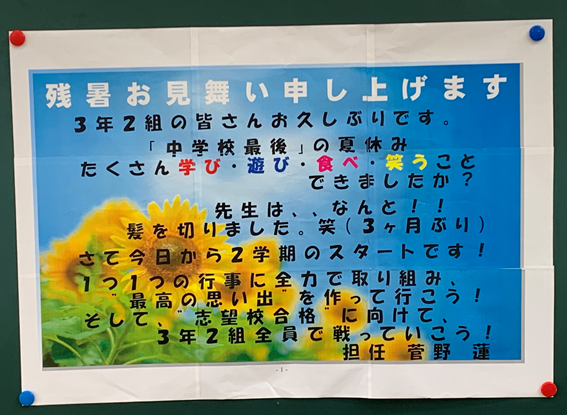 残暑お見舞い申し上げます
3年2組の皆さんお久しぶりです。
「中学校最後」の夏休み
たくさん学び・遊び・食べ・笑うこと
できましたか?
先生は、、なんと!!
髪を切りました。笑(3ヶ月ぶり)
さて今日から2学期のスタートです!
1つ1つの行事に全力で取り組み、
"最高の思い出"を作って行こう!
そして、"志望校合格"に向けて、
3年2組全員で戦っていこう!
担任 菅野 蓮
- 1 -